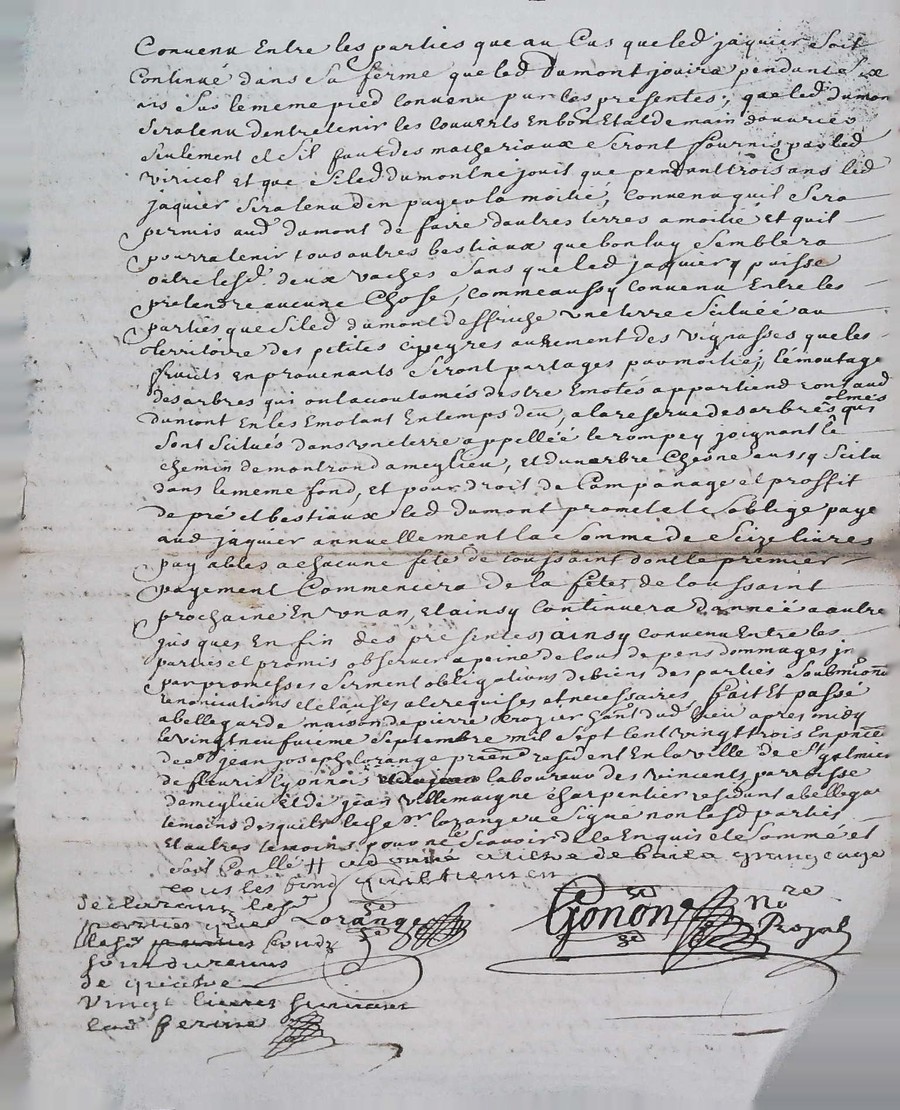 Convenu Entre les parties que au Cas que led jaquier Soit
Continué dans Sa ferme que led Dumont jouira pendant
ans Sur le meme pied Convenu par les presentes; que led dumon
Sera tenu dentretenir les Couverts En bon Etat de main douvriés
Seulement et Sil faut des matheriaux Seront fournis par led
viricel Et que Si led dumont ne jouit que pendant trois ans led
jaquier Sera tenu den payer la moitié; Convenu quil Sera
permis aud dumont de faire dautres terres a moitié et quil
pourra tenir tous autres bestiaux que bon luy Semblera
outre lesd. deux vaches Sans que led jaquier y puisse
pretendre aucune Chose, Comme aussy Convenu Entre les
parties que Si led dumont deffriche une terre Scituéé au
territoire des petites autrement des vignasses que les
fruits En provenants Seront partages par moitié; lémoutage
des arbres qui ont acoutumés destre Emotés appartiendront aud
dumont En les Emotant En temps deu, a la reserve des arbres olmes qui
Sont Scitués dans une terre appelléé le rompey joignant le
chemin de montrond a meylieu, et dun arbre Chesne aussy Scitu
dans le meme fond, et pour droit de Campanage et proffit
de pré et bestiaux led dumont promet et Soblige paye
aud jaquier annuellement la Somme de Seize livres
payables a chacune féte de toussaint dont le premier
payement Commencera de la fète de toussaint
prochaine En un an, Et ainsy Continuera dannéé a autre
jusques En fin des presentes, ainsy Convenu Entre les
parties et promis observer a peine de tous depens dommages in
par promesses Serment obligations de biens des parties Soubmions
renonciations et clauses a ce requises et necessaires, fait Et passé
a bellegarde maison de pierre Crozier dud. lieu apres midy
le vingt neufvieme Septembre mil Sept Cent vingt trois En pnce
de Sr jean joseph lorange resident En la ville de St galmier
de fleurit lyonnois laboureur des vincents parroisse
de meylieu et de jean villemaigne charpentier residant a bellegar
temoins desquels led Sr lorange a Signé non lesd parties
Et autres temoins pour ne Scavoir de ce Enquis et Sommé et
Soit Conllé # a titre de bail a grangeage
tous les fond
declarant lesd
parties que Lorange Gonon No.re Royal
lesd fonds
Sont
de quatre
vingt livres Suivant
lad ferme